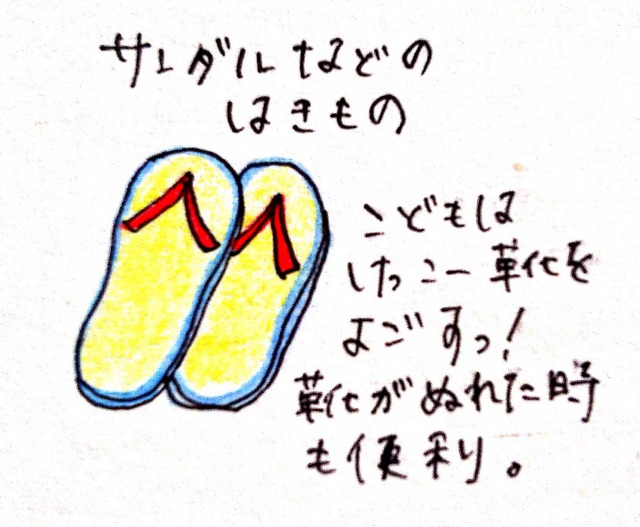 サンダルなどの
はきもの
こどもは
けっこー靴を
よごすっ!
靴がぬれた時
も便利。